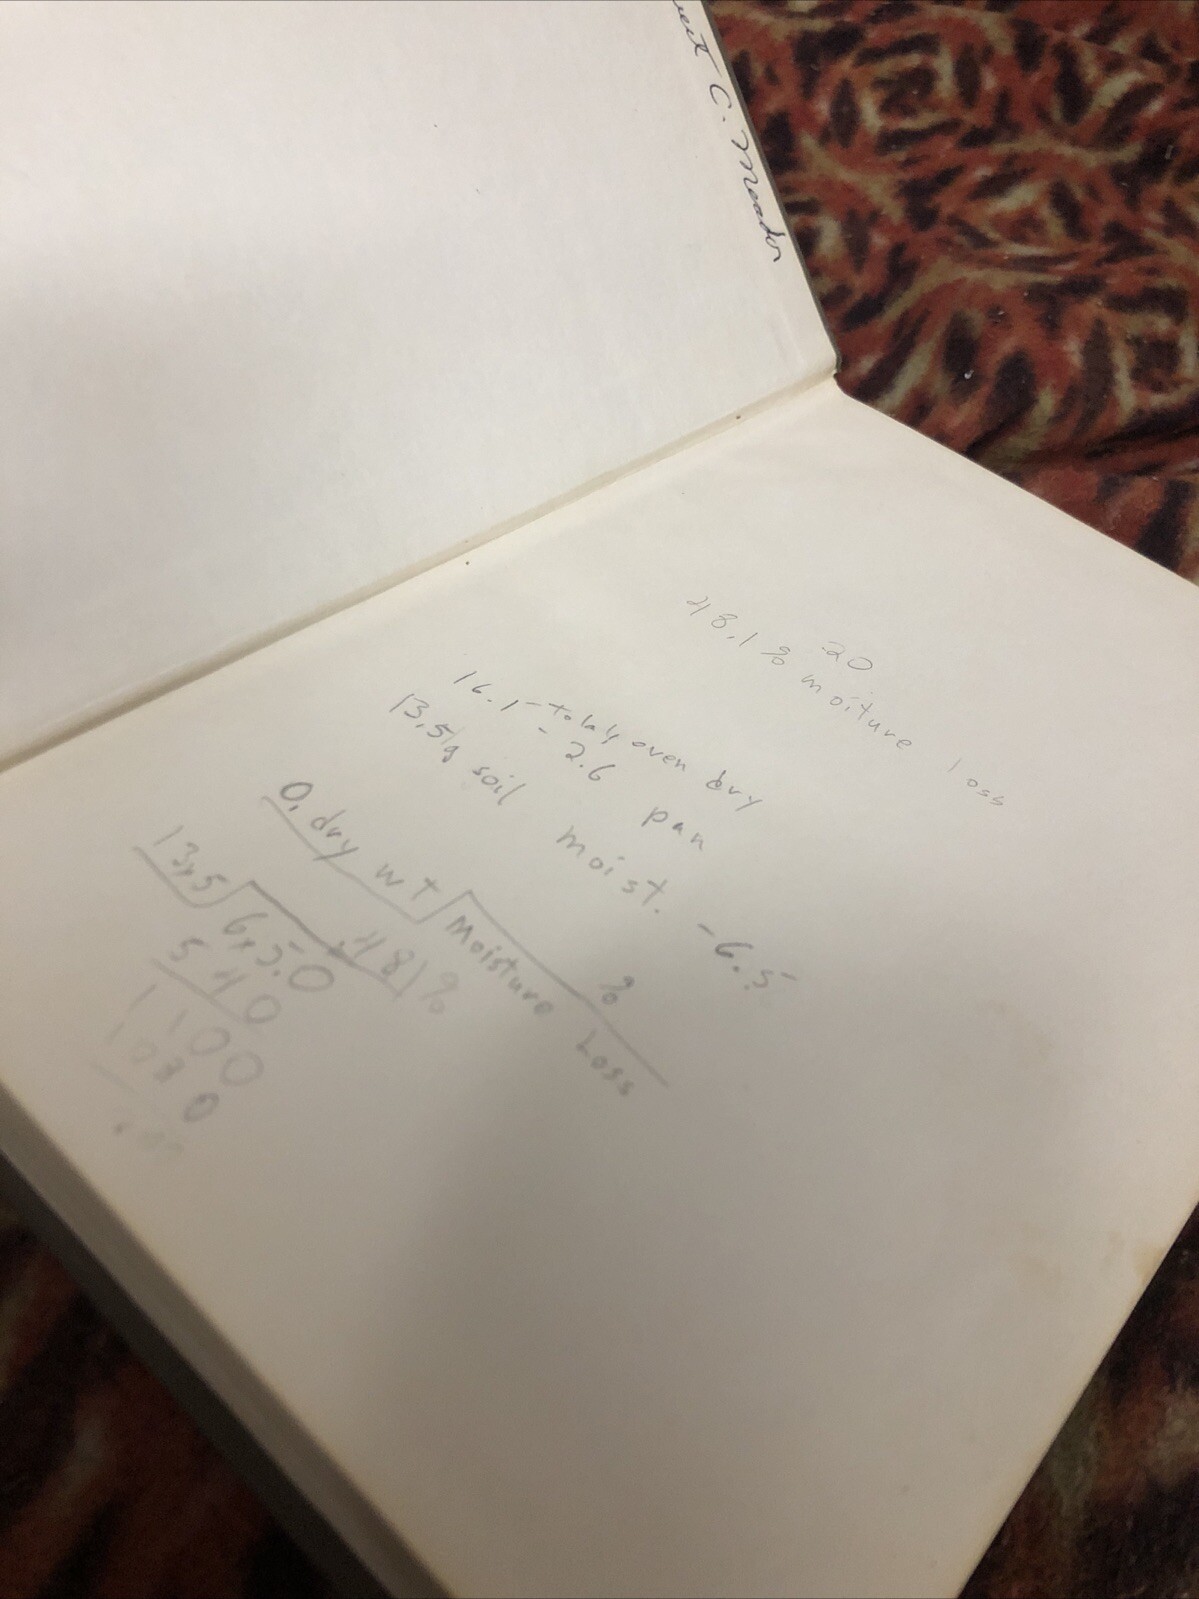 C. Meador
20
48.1% moiture loss
16.1 - totaly oven dry
- 2.6 pan
13.5g soil moist. - 6.5
%
O. dry wt Moisture Loss
481%
13.5 6.5.0
5 40
1 100
1080